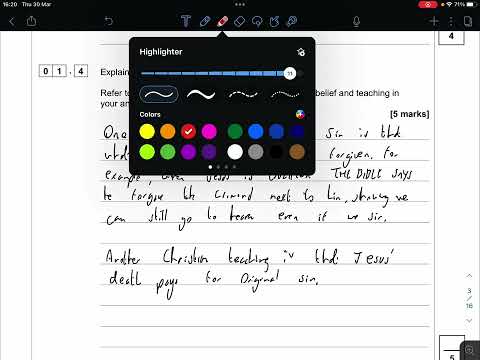 16:20 Thu 30 Mar
71%
4
Highlighter
11
Colors
0 1 . 4 Explain
Refer to belief and teaching in
your an
[5 marks]
One Sin is that
forgiven. for
example, when Jesus is THE BIBLE SAYS
he forgave the criminal next to him, showing we
can still go to heaven even if we sin.
Another Christian teaching is that Jesus'
death pays for Original sin.
3
/
16
5